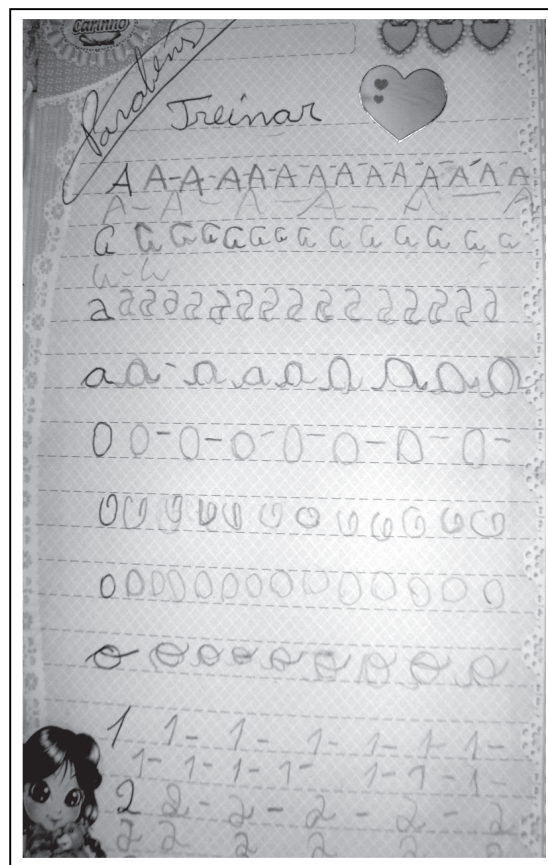 Carinho
Parabéns
Treinar
A A-A-A A-A A A A A A A A A
A-A-A-A-A-A
a a a a a a a a a a a a a a
a-a
a a a a a a a a a a a a a a
a a-a a a a a a a
O O-O-O-O-O-O-O-
O O O O O O O O O O O O
o o o o o o o o o o o o o o
o o o o o o o o o
1 1-1-1-1-1-1-
1-1-1-1-1-1-1-
2 2-2-2-2-2
2 2 2 2 2 2